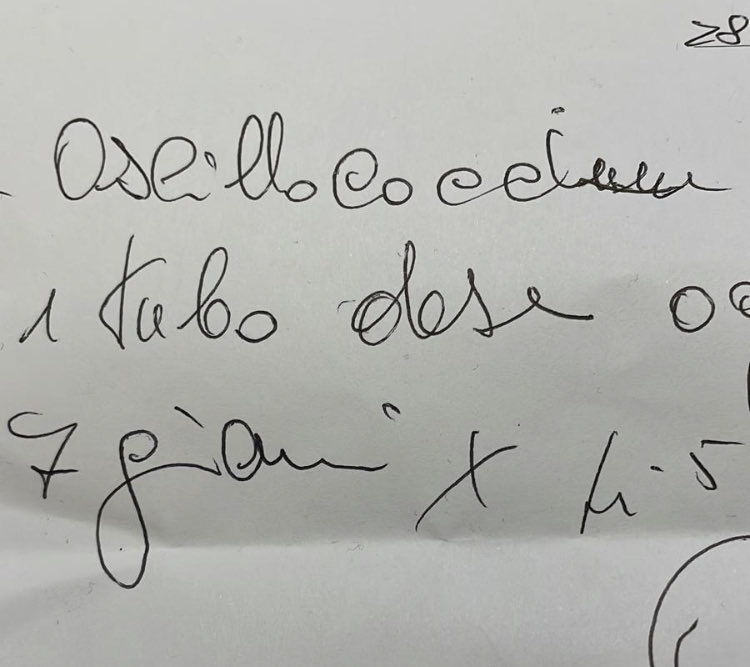 28
- Oscillococcinum
1 tubo dose og
7 giorni x 4-5